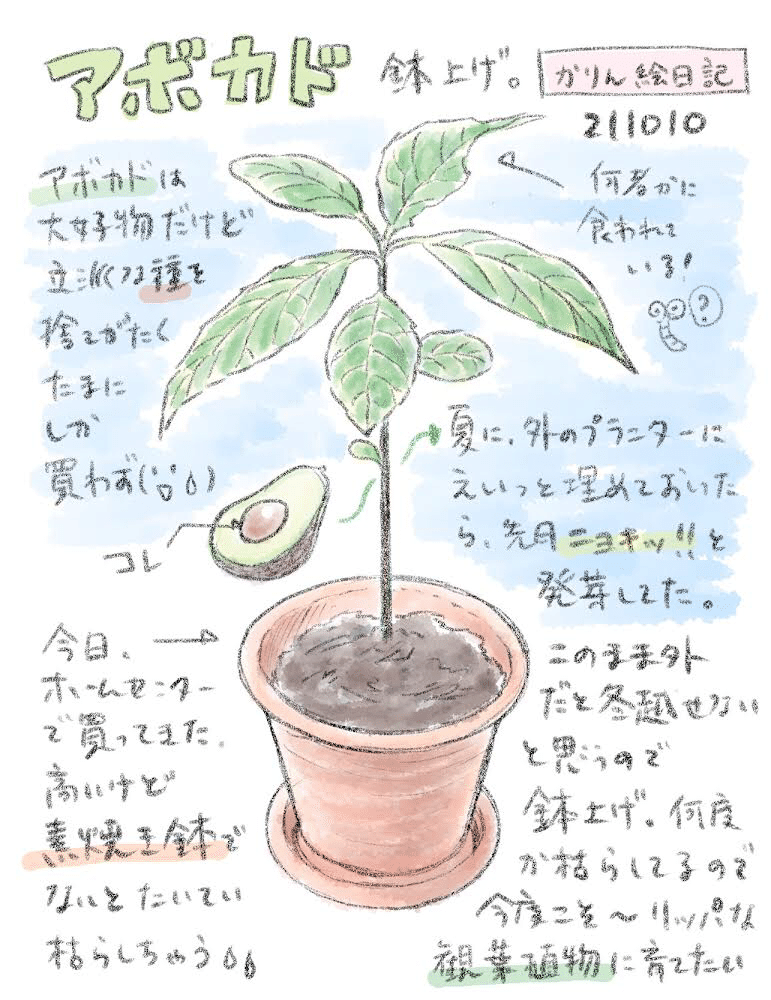 アボカド 鉢上げ。
かりん絵日記
211010
アボカドは
大好物だけど
立派な種を
捨てがたく
たまに
しか
買わず(;;)
何者かに
食われて
いる!
?
コレ
夏に、外のプランターに
えいっと埋めておいた
ら、先月ニョキッ!!と
発芽してた。
今日、→
ホームセンター
で買ってきた。
高いけど
素焼き鉢で
ないとたいてい
枯らしちゃう
このまま外
だと冬越せない
と思うので
鉢上げ。何度
か枯らしてるので
今度こそ〜リッパな
観葉植物に育てたい